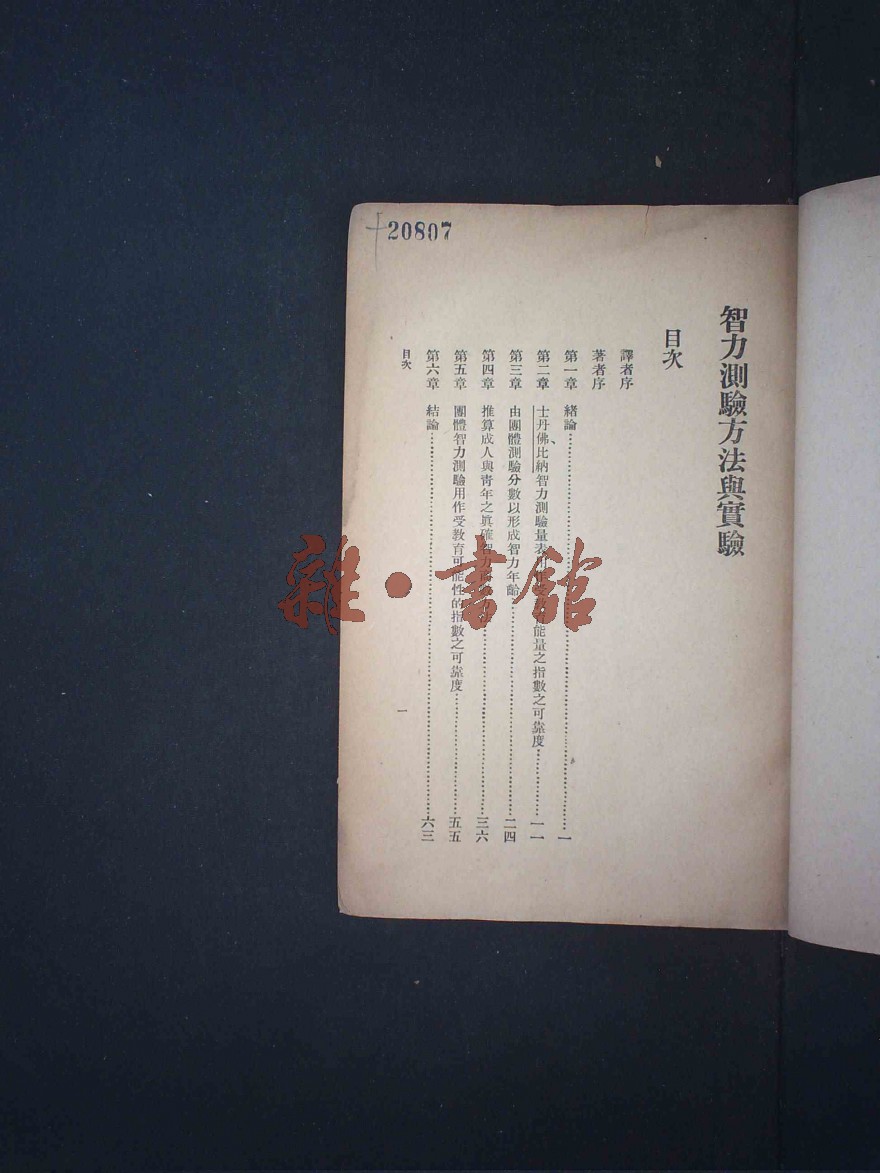 20807
智力測驗方法與實驗
目次
譯者序
著者序
第一章 緒論 一
第二章 士丹佛、比納智力測驗量表 能量之指數之可靠度 一一
第三章 由團體測驗分數以形成智力年齡 二四
第四章 推算成人與青年之眞確智力 三六
第五章 團體智力測驗用作受教育可能性的指數之可靠度 五五
第六章 結論 六三
目次
一
雜·書館